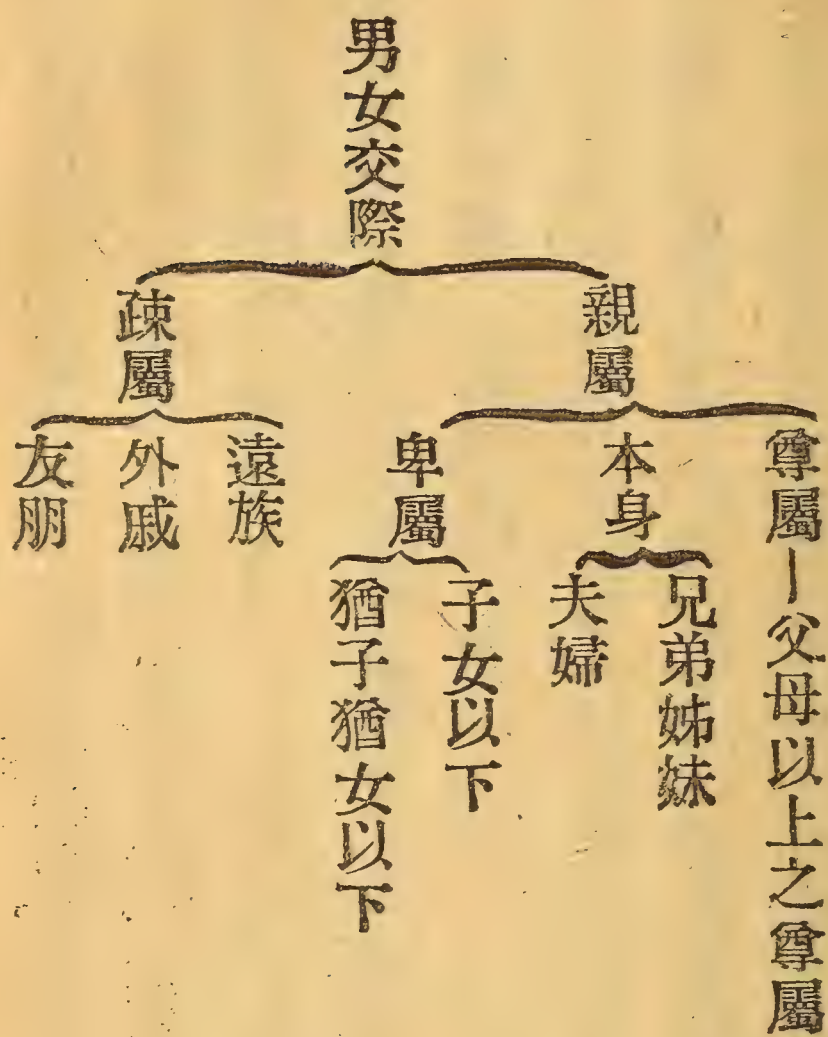 男女交際
親屬
尊屬—父母以上之尊屬
本身
兄弟姊妹
夫婦
卑屬
子女以下
猶子猶女以下
疎屬
遠族
外戚
友朋